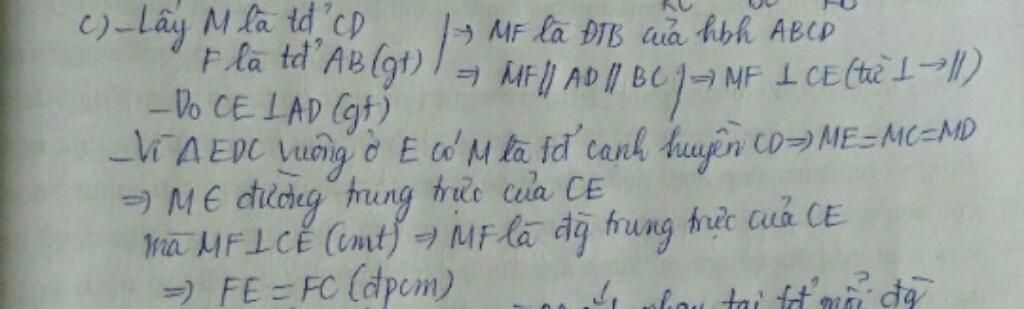 c) - Lấy M là tđ' CD
F là tđ' AB (gt)
⇒ MF là ĐTB của hbh ABCD
⇒ MF // AD // BC
⇒ MF ⊥ CE (từ ⊥ → //)
- Do CE ⊥ AD (gt)
- Vì Δ EDC vuông ở E có M là tđ' cạnh huyền CD ⇒ ME = MC = MD
⇒ M ∈ đường trung trực của CE
mà MF ⊥ CE (cmt) ⇒ MF là đg trung trực của CE
⇒ FE = FC (đpcm)
nhau tại tđ' mỗi đg